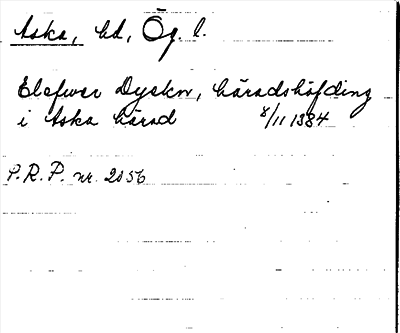 Aska, hd, Ög. l.
Elefwer Dyekn, häradshöfding
i Aska härad 8/11 1384
P.R.P. nr. 2056